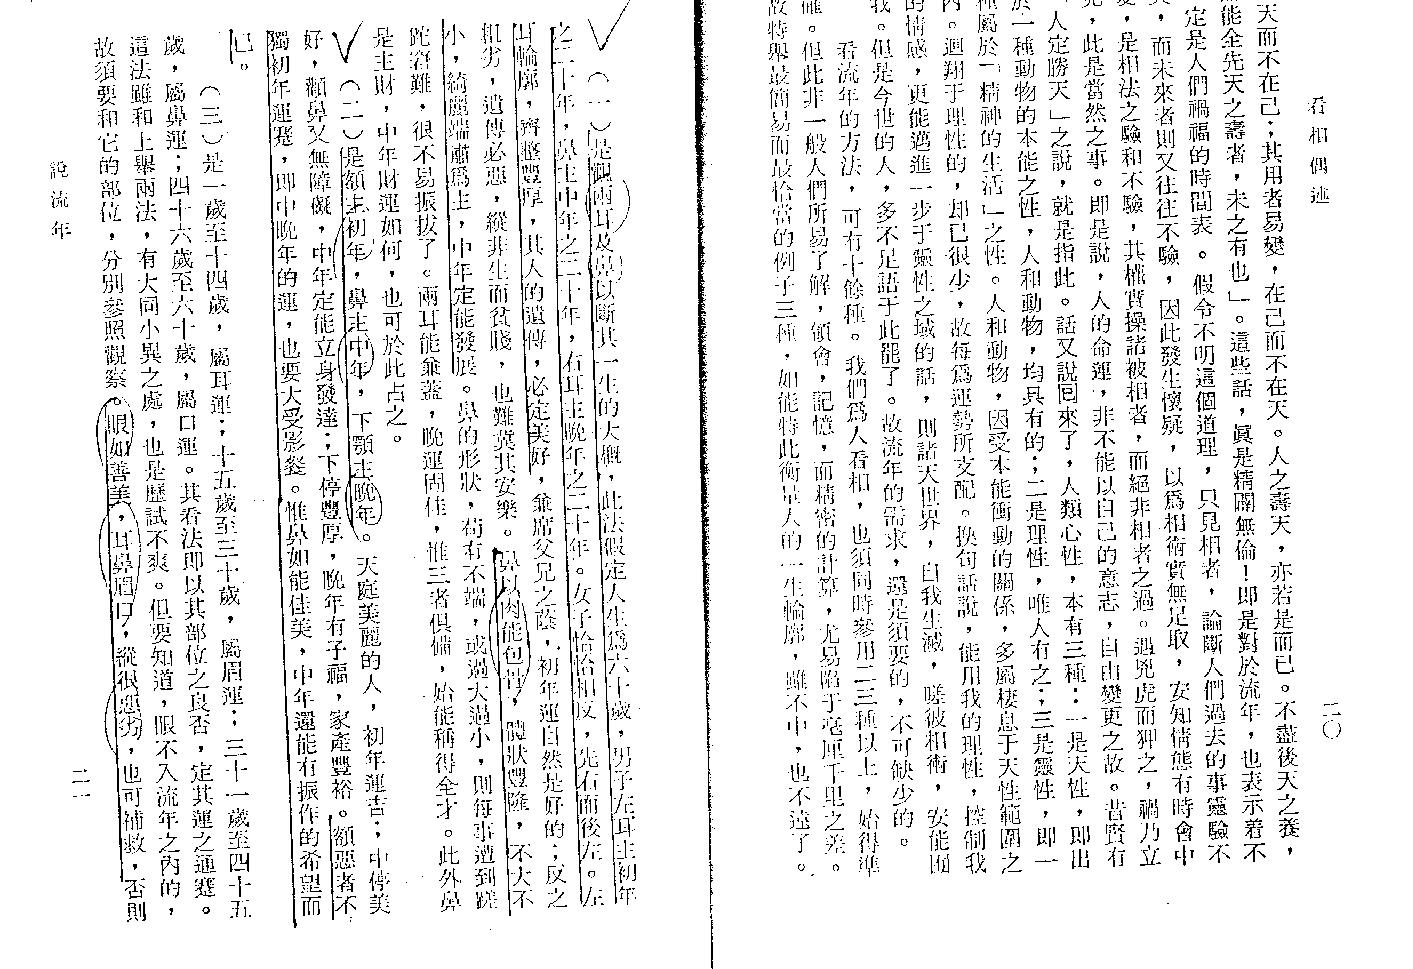 看相偶述
二〇
天而不在己；其用者易變，在己而不在天。人之壽夭，亦若是而已。不盡後天之養，
能全先天之壽者，未之有也」。這些話，眞是精闢無倫！即是對於流年，也表示着不
定是人們禍福的時間表。假令不明這個道理，只見相者，論斷人們過去的事靈驗不
，而未來者則又往往不驗，因此發生懷疑，以爲相術實無足取，安知情態有時會中
，是相法之驗和不驗，其權實操諸被相者，而絕非相者之過。遇兇虎而狎之，禍乃立
，此是當然之事。即是說，人的命運，非不能以自己的意志，自由變更之故。昔賢有
「人定勝天」之說，就是指此。話又說回來了，人類心性，本有三種：一是天性，即出
於一種動物的本能之性，人和動物，均具有的；二是理性，唯人有之；三是靈性，即一
種屬於「精神的生活」之性。人和動物，因受本能衝動的關係，多屬棲息于天性範圍之
內。迴翔于理性的，却已很少，故每爲運勢所支配。換句話說，能用我的理性，控制我
的情感，更能邁進一步于靈性之域的話，則諸天世界，自我生滅，嗟彼相術，安能囿
我。但是今世的人，多不足語于此罷了。故流年的需求，還是須要的，不可缺少的。
看流年的方法，可有十餘種。我們爲人看相，也須同時參用二三種以上，始得準
確。但此非一般人們所易了解，領會，記憶，而精密的計算，尤易陷于毫厘千里之差。
故特舉最簡易而最恰當的例子三種，如能特此衡量人的一生輪廓，雖不中，也不遠了。
（一）是觀兩耳及鼻以斷其一生的大概，此法假定人生爲六十歲，男子左耳主初年
之二十年，鼻主中年之二十年，右耳主晚年之二十年。女子恰恰相反，先右而後左。左
耳輪廓，齊整豐厚，其人的遺傳，必定美好，兼席父兄之蔭，初年運自然是好的；反之
粗劣，遺傳必惡，縱非生而貧賤，也難冀其安樂。鼻以肉能包骨，體狀豐隆，不大不
小，綺麗端肅爲主，中年定能發展。鼻的形狀，苟有不端，或過大過小，則每事遭到蹉
跎窘難，很不易振拔了。兩耳能兼蓋，晚運固佳，惟三者俱備，始能稱得全才。此外鼻
是主財，中年財運如何，也可於此占之。
（二）是額主初年，鼻主中年，下顎主晚年。天庭美麗的人，初年運吉；中停美
好，顴鼻又無障礙，中年定能立身發達；下停豐厚，晚年有子福，家產豐裕。額惡者不
獨初年運蹇，即中晚年的運，也要大受影響。惟鼻如能佳美，中年還能有振作的希望而
已。
（三）是一歲至十四歲，屬耳運；十五歲至三十歲，屬眉運；三十一歲至四十五
歲，屬鼻運；四十六歲至六十歲，屬口運。其看法即以其部位之良否，定其運之通蹇。
這法雖和上舉兩法，有大同小異之處，也是歷試不爽。但要知道，眼不入流年之內的，
故須要和它的部位，分別參照觀察。眼如善美，耳鼻眉口，縱很惡劣，也可補救，否則
說流年
二一